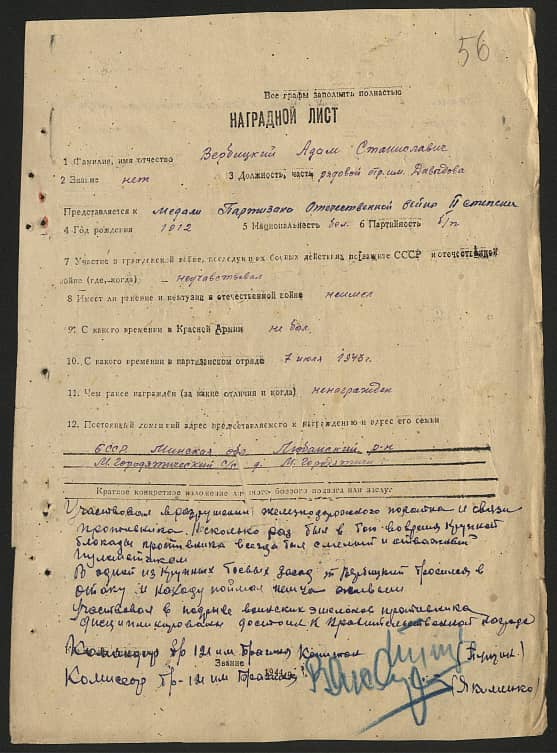 56
Все графы заполнять полностью
НАГРАДНОЙ ЛИСТ
1 Фамилия, имя отчество Вербицкий Адам Станиславич
2 Звание нет 3 Должность, часть рядовой отр. им. Давыдова
Представляется к медали Партизано Отечественной войно II степени
4 Год рождения 1912 5 Национальность бел. 6 Партийность б/п
7 Участие в гражданской войне, последующих боевых действиях по защите СССР и отечественной
войне (где, когда) – неучавствовал
8 Имеет ли ранение и контузии в отечественной войне неимел
9. С какого времени в Красной Армии не был.
10. С какого времени в партизанском отряде 7 июля 1943 г.
11. Чем ранее награждён (за какие отличия и когда) ненагражден
12. Постоянный домашний адрес представляемого к награждению и адрес его семьи
БССР Минская обл Любанский р-н
М. Городятический С/с д. М. Городятичи
Краткое конкретное изложение личного боевого подвига или заслуг
Участвовал в разрушении железнодорожного полотна и связи
противника. Несколько раз был в бою вовремя крупной
блокады противника всегда был смелый и отважный
пулеметчиком
В одной из крупных боевых засад т. Вербицкий бросился в
атаку и находу поймал немца живьем
Участвовал в подрыве воинских эшелонов противника
дисциплинирован достоин к Правительственной награде
Командор бр 121 им Брагина Капитан
Звание
Комиссар бр-121 им Брагина
(Якименко)